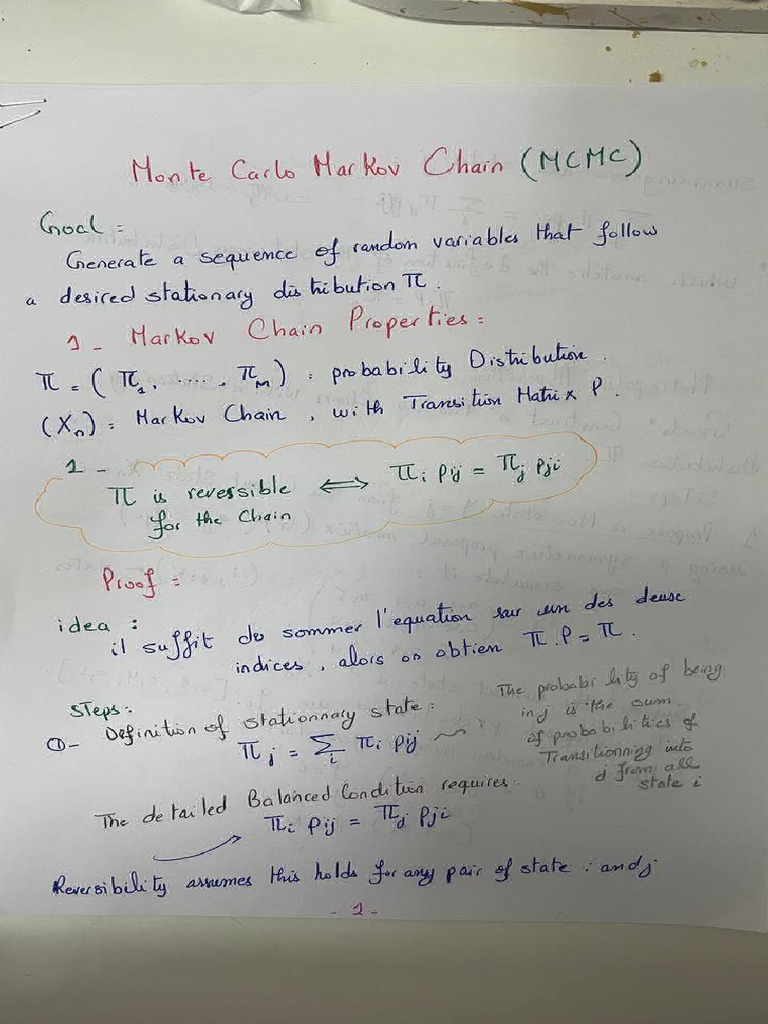 Monte Carlo Markov Chain (MCMC)
Goal :
Generate a sequence of random variables that follow
a desired stationary distribution π.
1 - Markov Chain Properties :
π = ( π₁, ....., π_M ) : probability Distribution.
(Xn) : Markov Chain, with Transition Matrix P.
1 -
π is reversible ⟺ πi pij = πj pji
for the Chain
Proof :
idea :
il suffit de sommer l'equation sur un des deuse
indices, alors on obtien π.P = π.
STeps :
①- Definition of stationnary state :
πj = Σi πi pij
The probability of being
in j is the sum
of probabilities of
Transitionning into
j from all
state i
The detailed Balanced Condition requires
πi pij = πj pji
Reversibility assumes this holds for any pair of state i and j
- 1 -